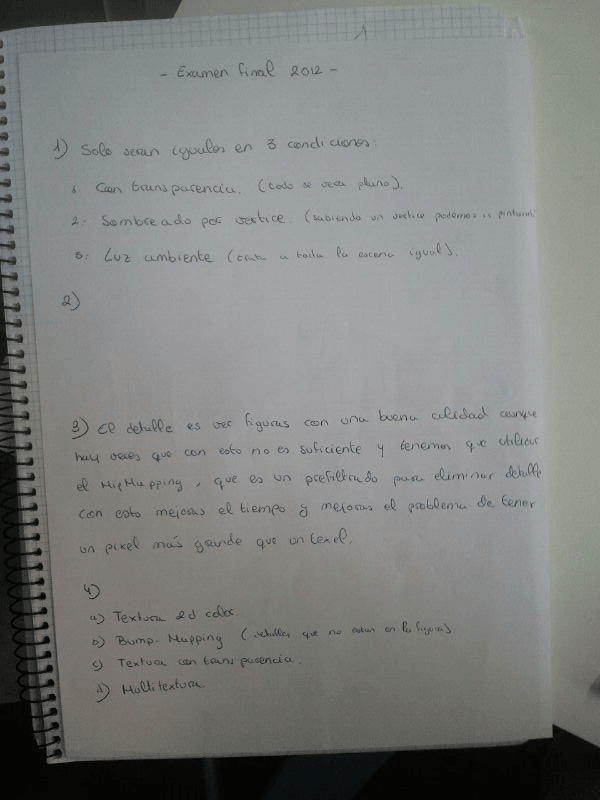 - Examen final 2012 -
1) Solo seran iguales en 3 condiciones:
1. Con transparencia. (todo se vera plano).
2. Sombreado por vertice. (sabiendo un vertice podemos ir pintando
3. Luz ambiente (trata a toda la escena igual).
2)
3) El detalle es ver figuras con una buena calidad aunque
hay veces que con esto no es suficiente y tenemos que utilizar
el MipMapping, que es un prefiltrado para eliminar detalle
con esto mejoras el tiempo y mejoras el problema de tener
un pixel más grande que un texel.
4)
a) Textura 2d color.
b) Bump-Mapping (detalles que no estan en la figura)
c) Textura con transparencia.
d) Multitextura.